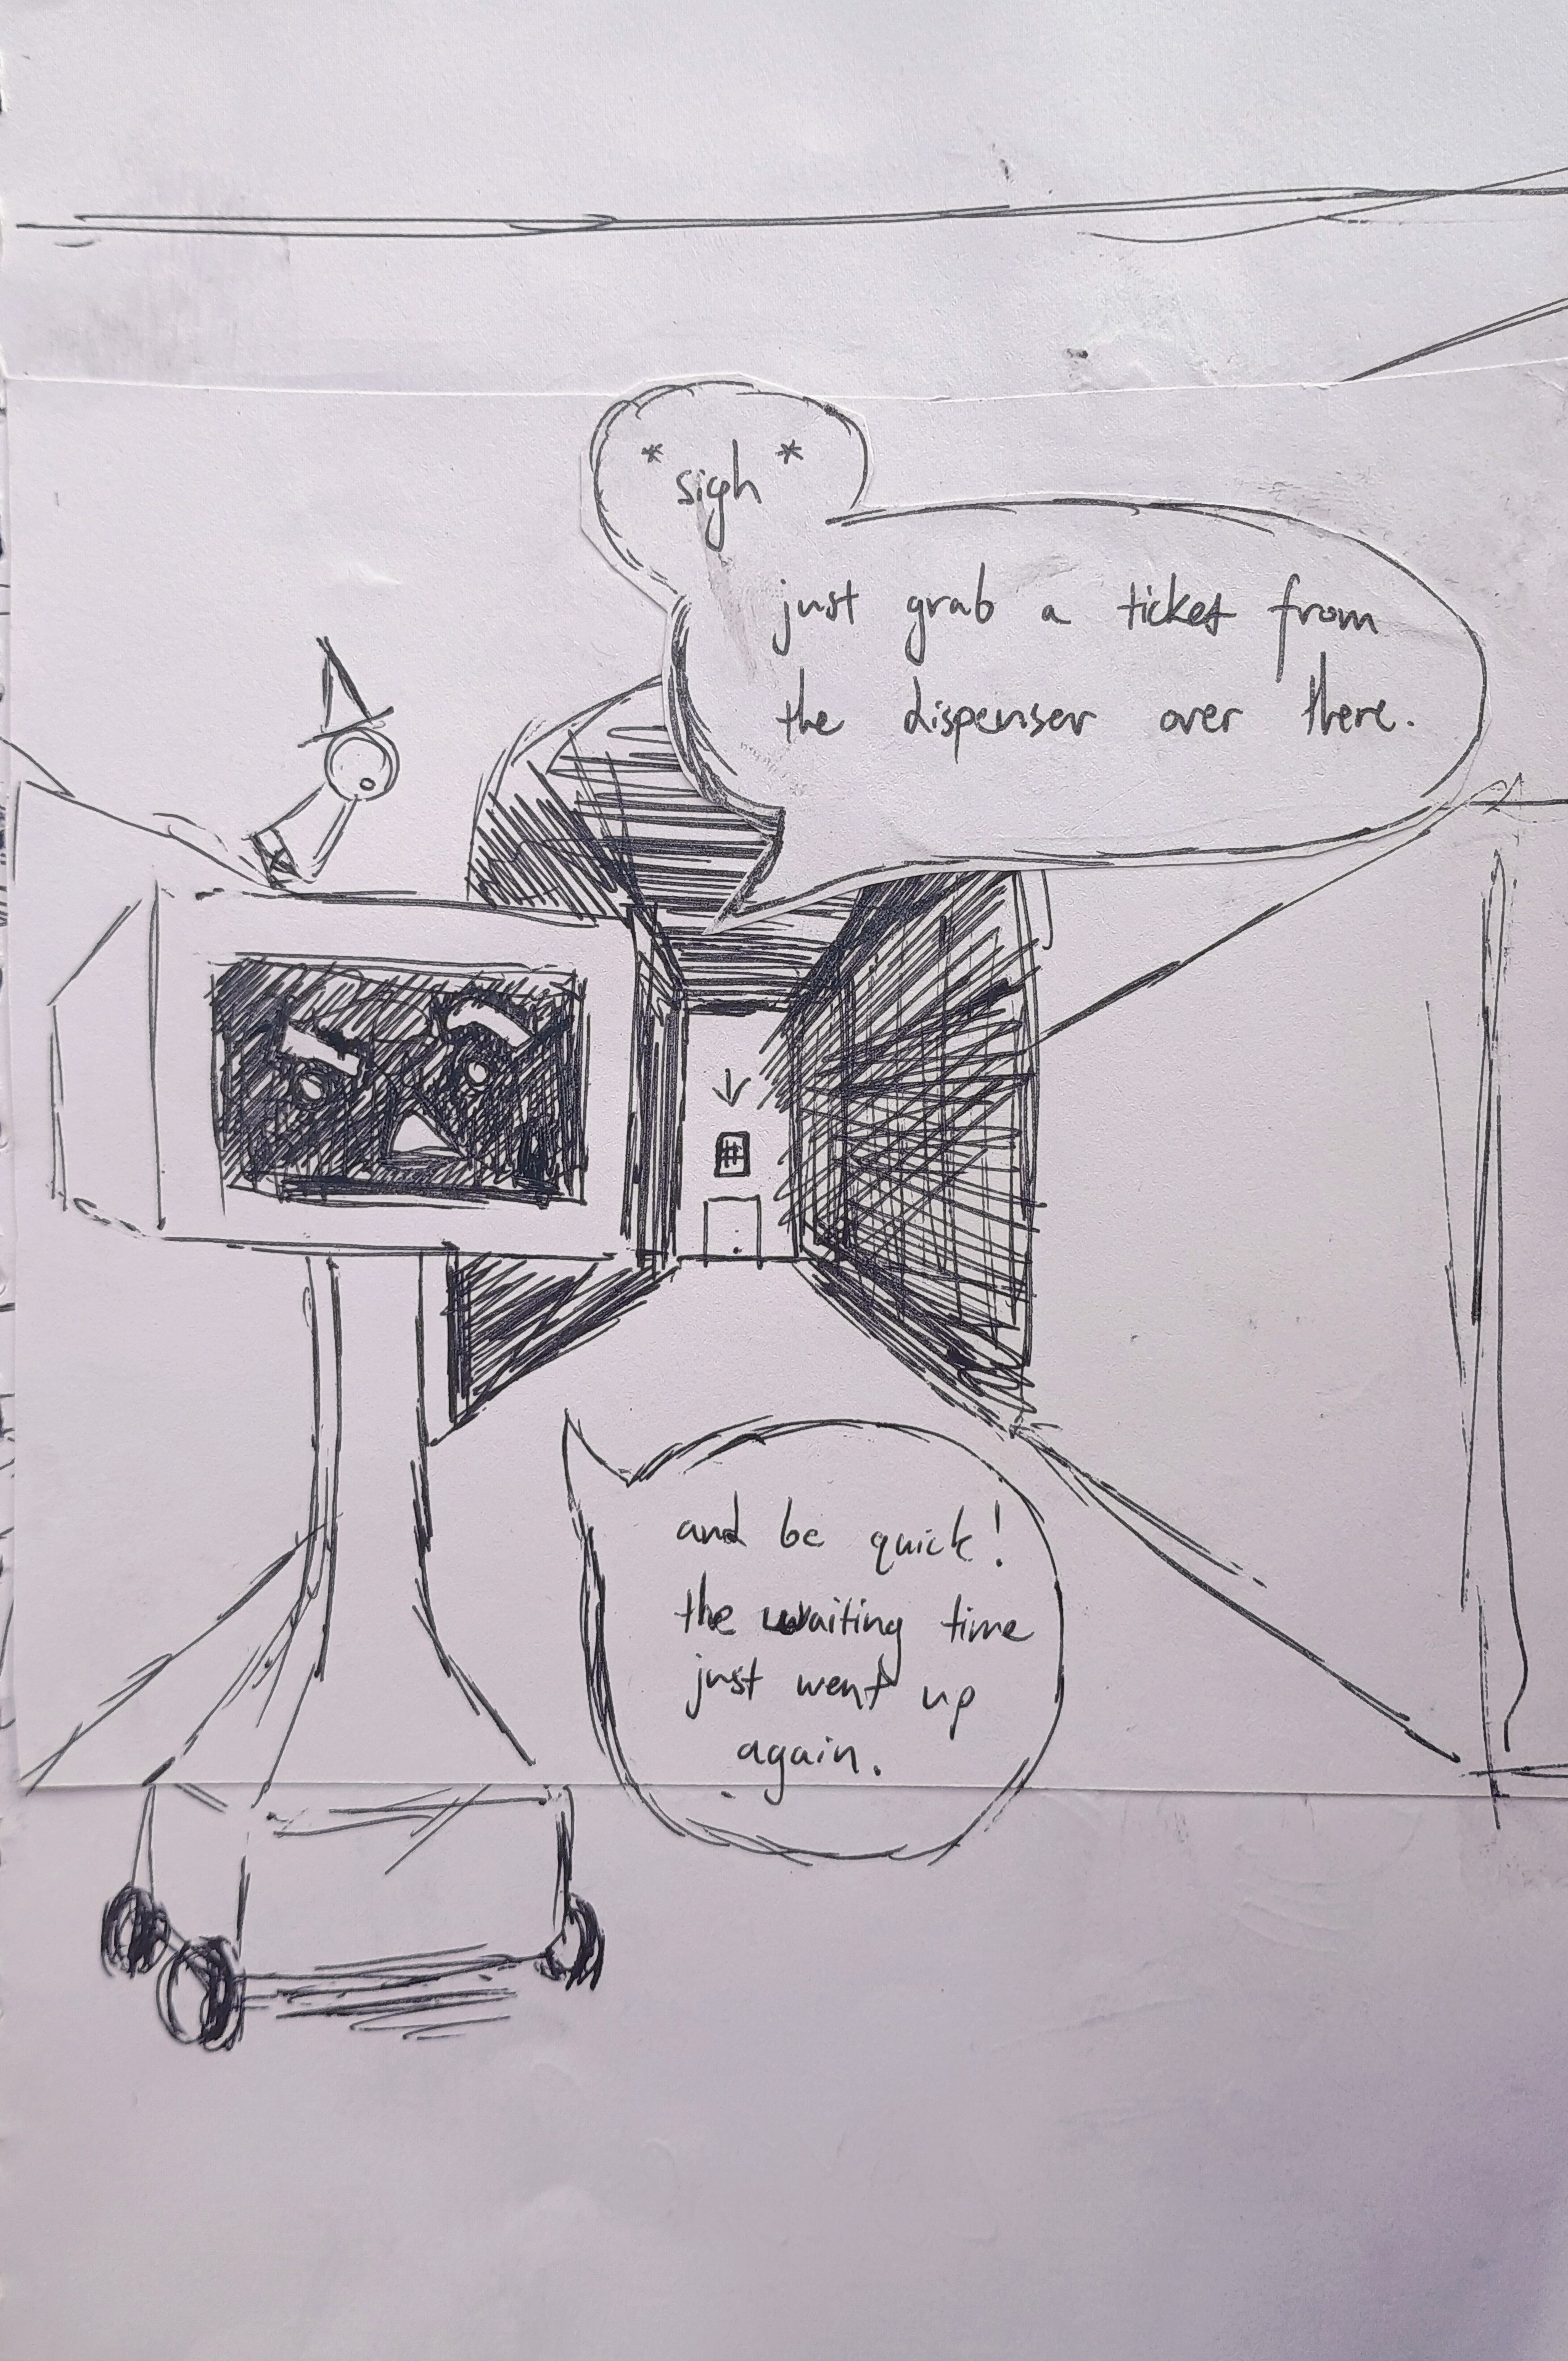 * sigh *
just grab a ticket from
the dispenser over there.
#
and be quick!
the waiting time
just went up
again.